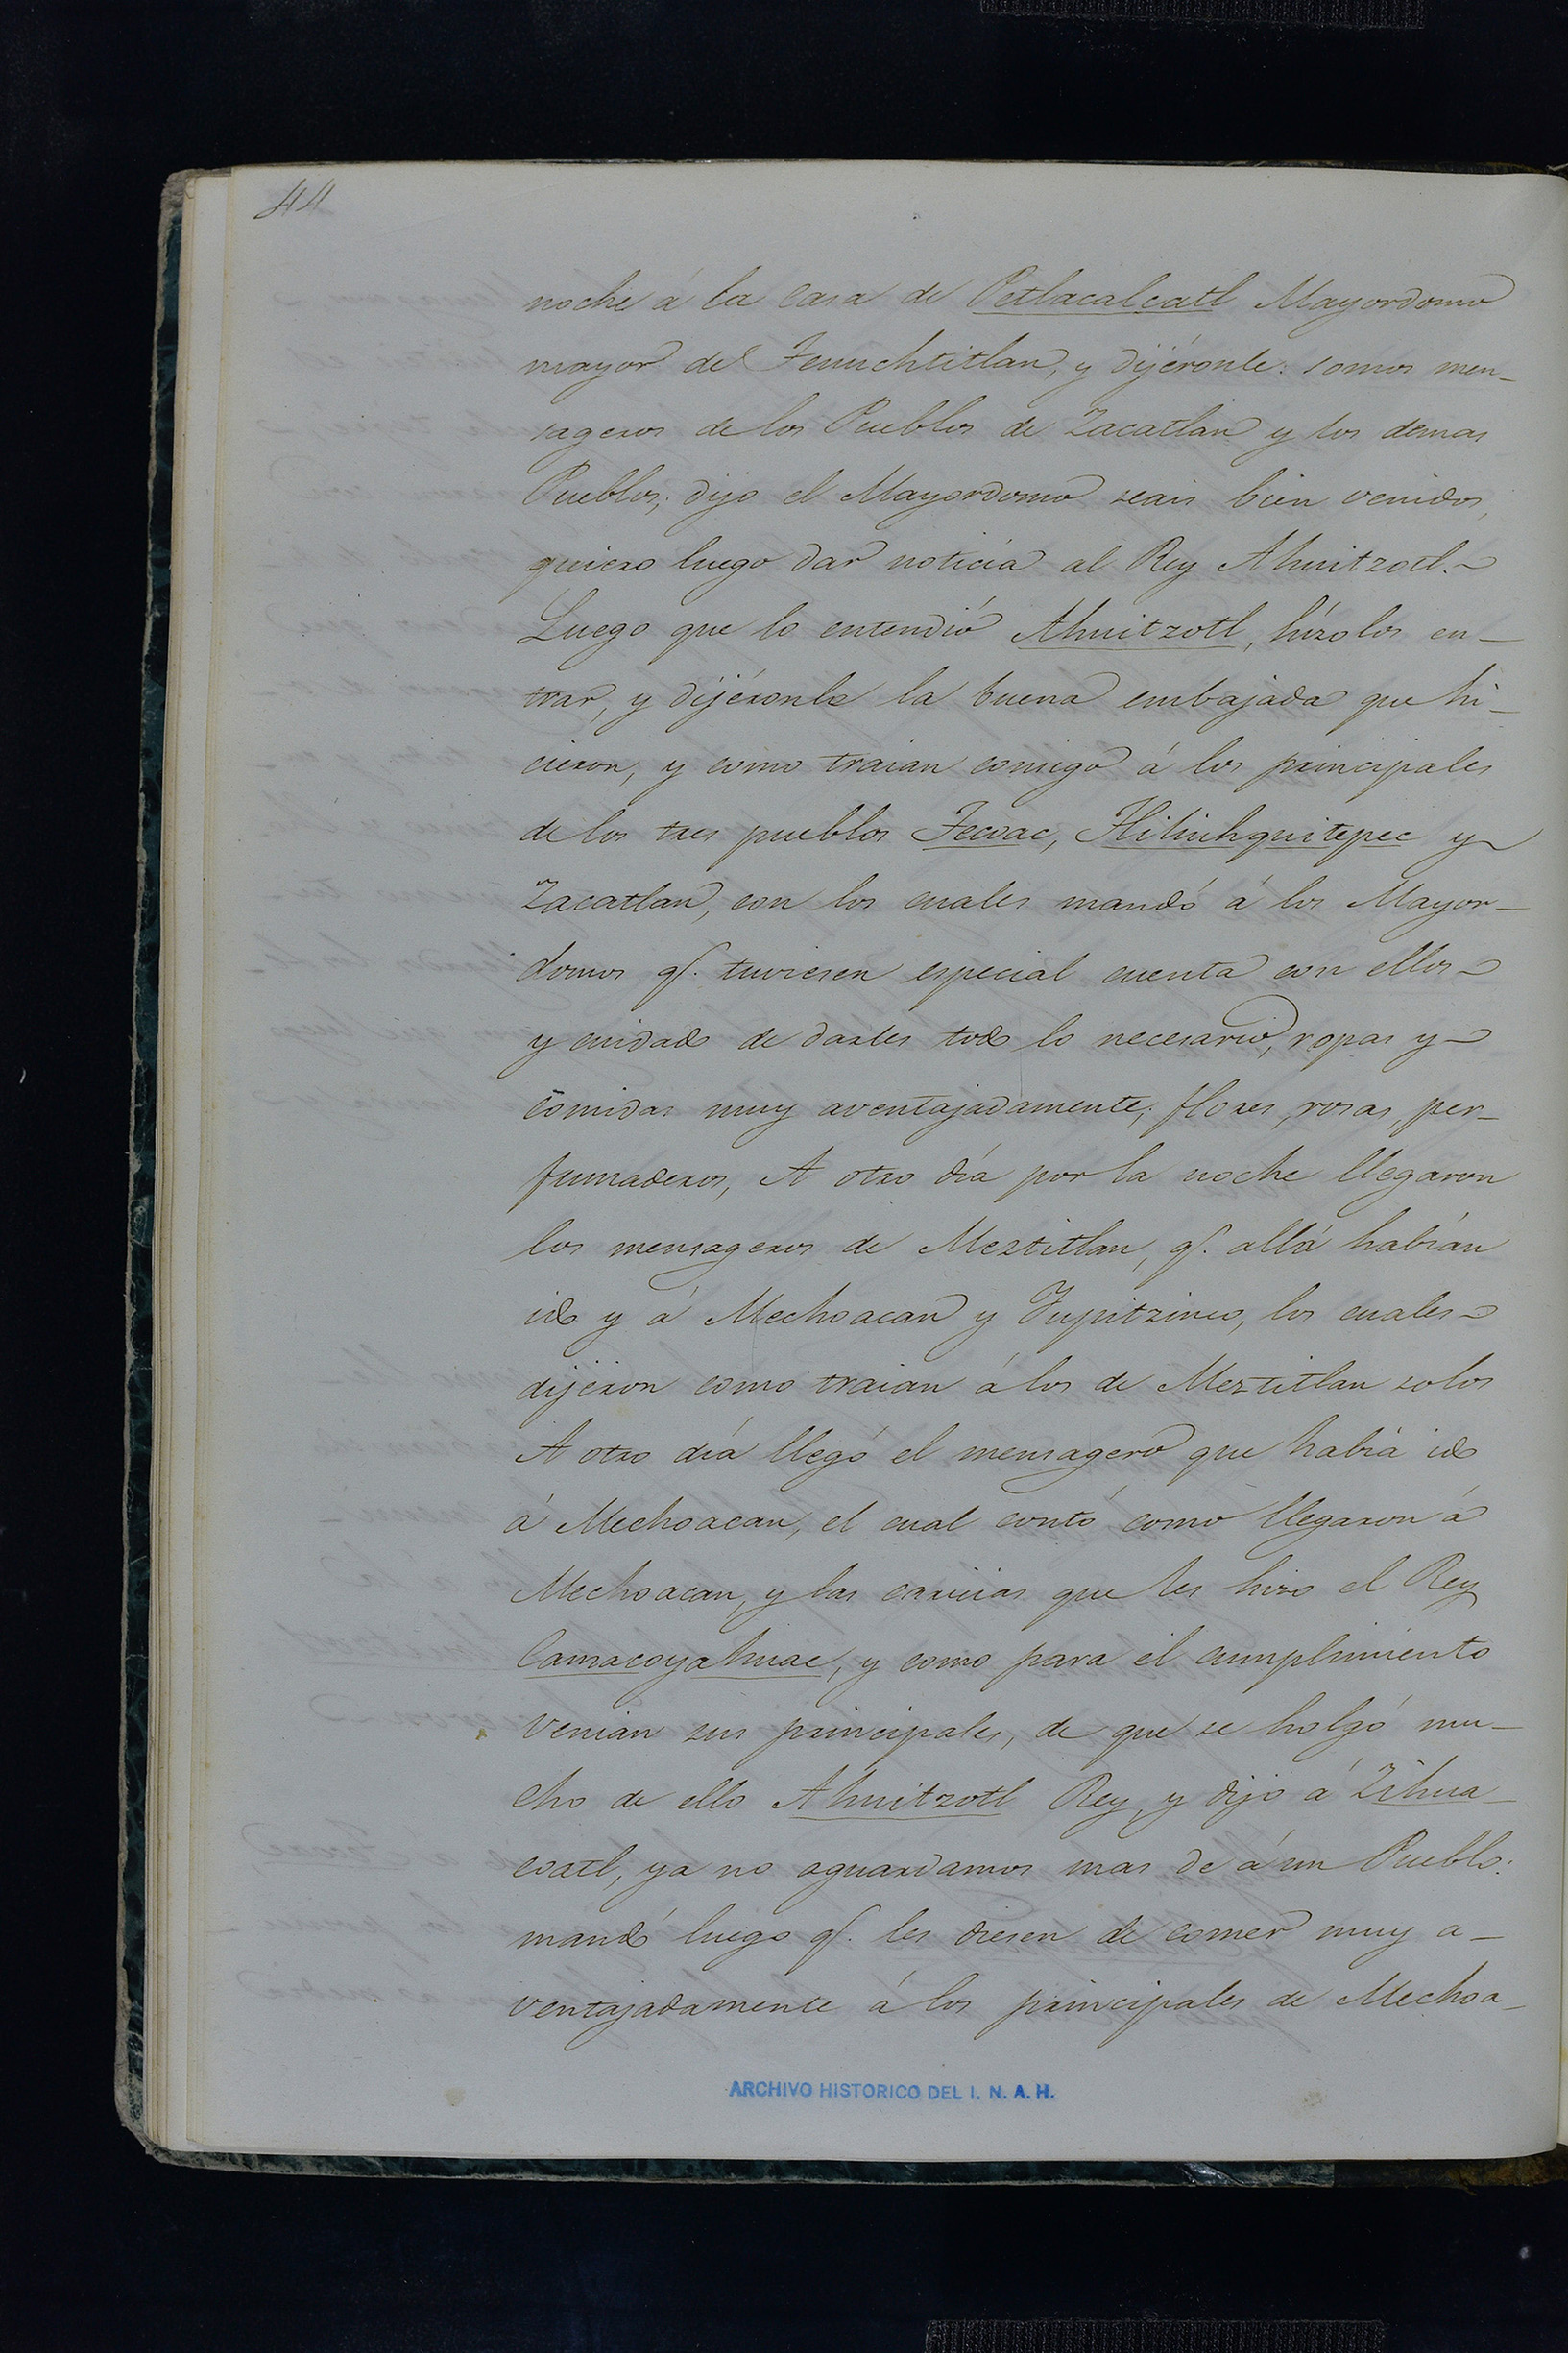 44
noche á la casa de Petlacalcatl Mayordomo
mayor de Tenuchtitlan, y dijéronle: somos men-
sageros de los Pueblos de Zacatlan y los demas
Pueblos; dijo el Mayordomo seais bien venidos,
quiero luego dar noticia al Rey Ahuitzotl.
Luego que lo entendió Ahuitzotl, hízolos en-
trar, y dijéronle la buena embajada que hi-
cieron, y como traian consigo á los principales
de los tres pueblos Tecoac, Hiliuhquitepec y
Zacatlan, con los cuales mandó á los Mayor-
domos q. tuviesen especial cuenta con ellos
y cuidado de darles todo lo necesario, ropas y
comidas muy aventajadamente, flores, rosas, per-
fumaderos, A otro día por la noche llegaron
los mensageros de Meztitlan, q. allá habían
ido y á Mechoacan y Yupitzinco, los cuales
dijeron como traian á los de Meztitlan solos
A otro día llegó el mensagero que había ido
á Mechoacan, el cual contó como llegaron á
Mechoacan, y las caricias que les hizo el Rey
Camacoyahuac, y como para el cumplimiento
venian sus principales, de que se holgó mu-
cho de ello Ahuitzotl Rey, y dijo á Zihua-
coatl, ya no aguardamos mas de á un Pueblo:
mandó luego q. les diesen de comer muy a-
ventajadamente á los principales de Mechoa-
ARCHIVO HISTORICO DEL I. N. A. H.